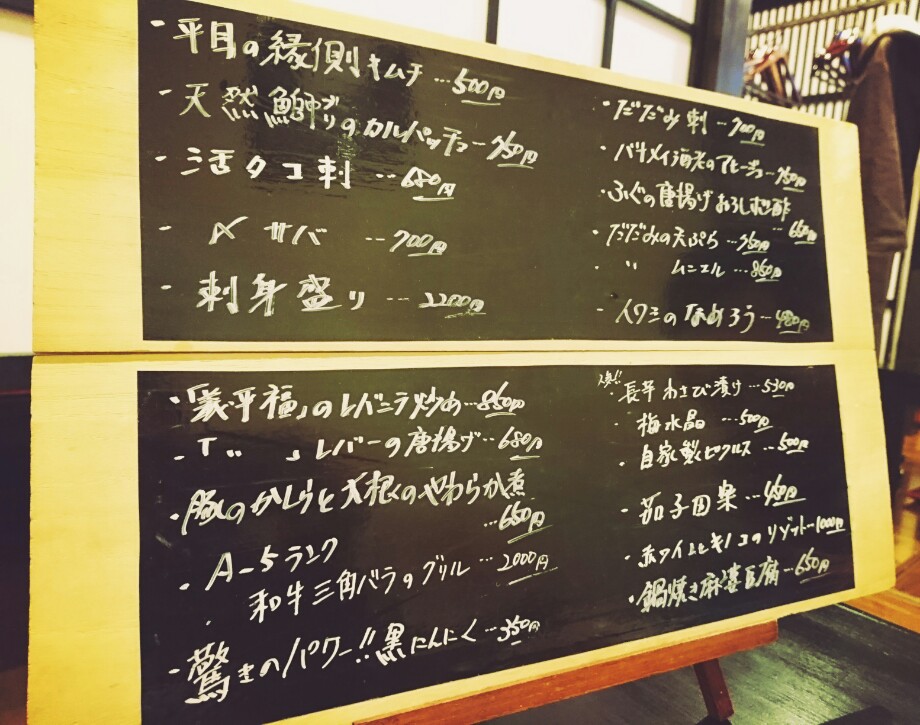 ・平目の縁側キムチ…500円
・天然鰤ブリのカルパッチョー750円
・活タコ刺…680円
・〆サバ…700円
・刺身盛り…2200円
・だだみ刺…700円
・バナメイ海老のアヒージョー750円
・ふぐの唐揚げおろしポン酢
…650円
・だだみの天ぷら…750円
・〃 ムニエル…860円
・イワシのなめろう…480円
・「義平福」のレバニラ炒め…860円
・「〃」レバーの唐揚げ…680円
・豚のかしらと大根のやわらか煮
…650円
・A-5ランク
和牛三角バラのグリル…2000円
・驚きのパワー!!黒にんにく…350円
人気!!
・長芋わさび漬け…530円
・梅水晶…500円
・自家製ピクルス…500円
・茄子田楽…450円
・赤ワインとキノコのリゾット…1000円
・鍋焼き麻婆豆腐…650円